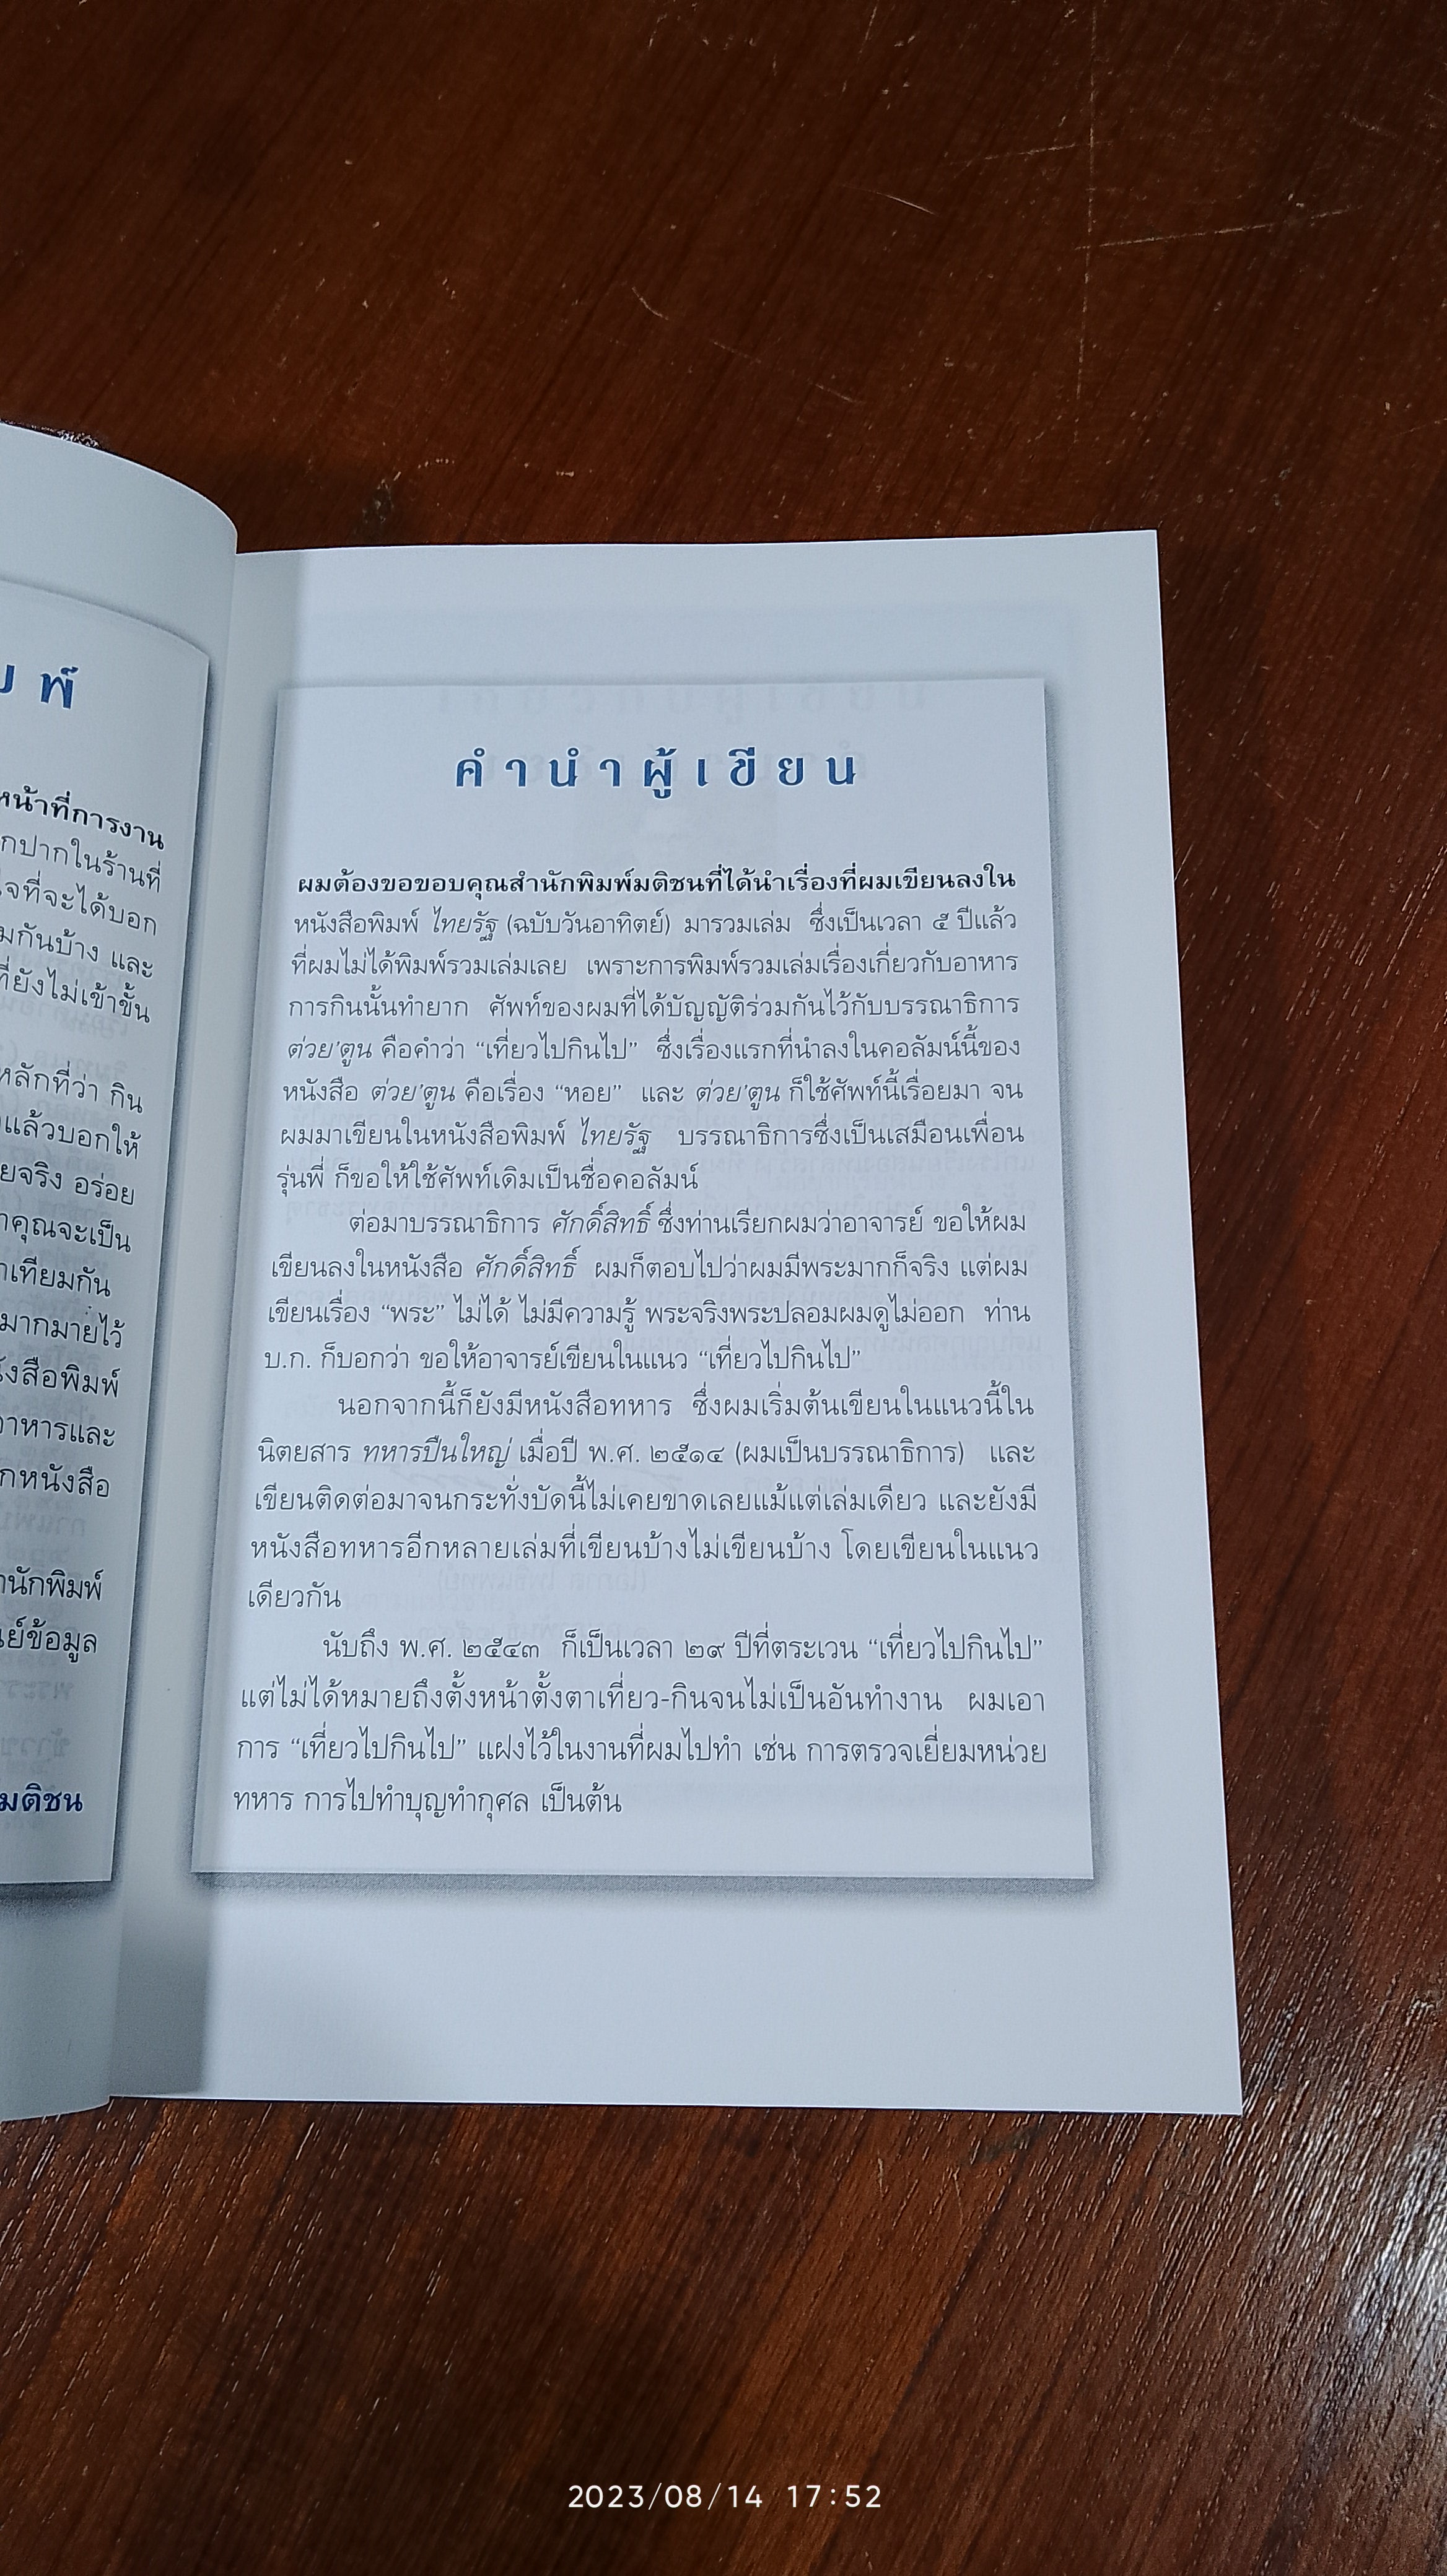 ม พ์
หน้าที่การงาน
กปากในร้านที่
ใจที่จะได้บอก
มกันบ้าง และ
ที่ยังไม่เข้าขั้น
หลักที่ว่า กิน
แล้วบอกให้
ยจริง อร่อย
าคุณจะเป็น
าเทียมกัน
มากมายไว้
ังสือพิมพ์
อาหารและ
กหนังสือ
านักพิมพ์
นย์ข้อมูล
มติชน
คำนำผู้เขียน
ผมต้องขอขอบคุณสำนักพิมพ์มติชนที่ได้นำเรื่องที่ผมเขียนลงใน
หนังสือพิมพ์ ไทยรัฐ (ฉบับวันอาทิตย์) มารวมเล่ม ซึ่งเป็นเวลา ๕ ปีแล้ว
ที่ผมไม่ได้พิมพ์รวมเล่มเลย เพราะการพิมพ์รวมเล่มเรื่องเกี่ยวกับอาหาร
การกินนั้นทำยาก ศัพท์ของผมที่ได้บัญญัติร่วมกันไว้กับบรรณาธิการ
ต่วย'ตูน คือคำว่า “เที่ยวไปกินไป” ซึ่งเรื่องแรกที่นำลงในคอลัมน์นี้ของ
หนังสือ ต่วย'ตูน คือเรื่อง “หอย” และ ต่วย'ตูน ก็ใช้ศัพท์นี้เรื่อยมา จน
ผมมาเขียนในหนังสือพิมพ์ ไทยรัฐ บรรณาธิการซึ่งเป็นเสมือนเพื่อน
รุ่นพี่ ก็ขอให้ใช้ศัพท์เดิมเป็นชื่อคอลัมน์
ต่อมาบรรณาธิการ ศักดิ์สิทธิ์ ซึ่งท่านเรียกผมว่าอาจารย์ ขอให้ผม
เขียนลงในหนังสือ ศักดิ์สิทธิ์ ผมก็ตอบไปว่าผมมีพระมากก็จริง แต่ผม
เขียนเรื่อง “พระ” ไม่ได้ ไม่มีความรู้ พระจริงพระปลอมผมดูไม่ออก ท่าน
บ.ก. ก็บอกว่า ขอให้อาจารย์เขียนในแนว “เที่ยวไปกินไป”
นอกจากนี้ก็ยังมีหนังสือทหาร ซึ่งผมเริ่มต้นเขียนในแนวนี้ใน
นิตยสาร ทหารปืนใหญ่ เมื่อปี พ.ศ. ๒๕๑๔ (ผมเป็นบรรณาธิการ) และ
เขียนติดต่อมาจนกระทั่งบัดนี้ไม่เคยขาดเลยแม้แต่เล่มเดียว และยังมี
หนังสือทหารอีกหลายเล่มที่เขียนบ้างไม่เขียนบ้าง โดยเขียนในแนว
เดียวกัน
นับถึง พ.ศ. ๒๕๔๓ ก็เป็นเวลา ๒๙ ปีที่ตระเวน “เที่ยวไปกินไป”
แต่ไม่ได้หมายถึงตั้งหน้าตั้งตาเที่ยว-กินจนไม่เป็นอันทำงาน ผมเอา
การ “เที่ยวไปกินไป” แฝงไว้ในงานที่ผมไปทำ เช่น การตรวจเยี่ยมหน่วย
ทหาร การไปทำบุญทำกุศล เป็นต้น
2023/08/14 17:52